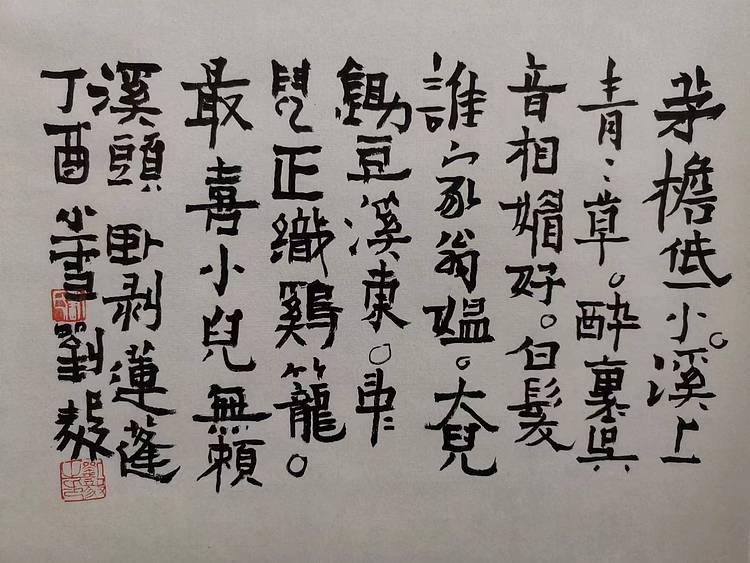 茅檐低小。溪上
青〻草。醉裏吳
音相媚好。白髮
誰家翁媼。大兒
鋤豆溪東。中
兒正織鷄籠。
最喜小兒無賴
溪頭卧剥蓮蓬
丁酉小雪劉